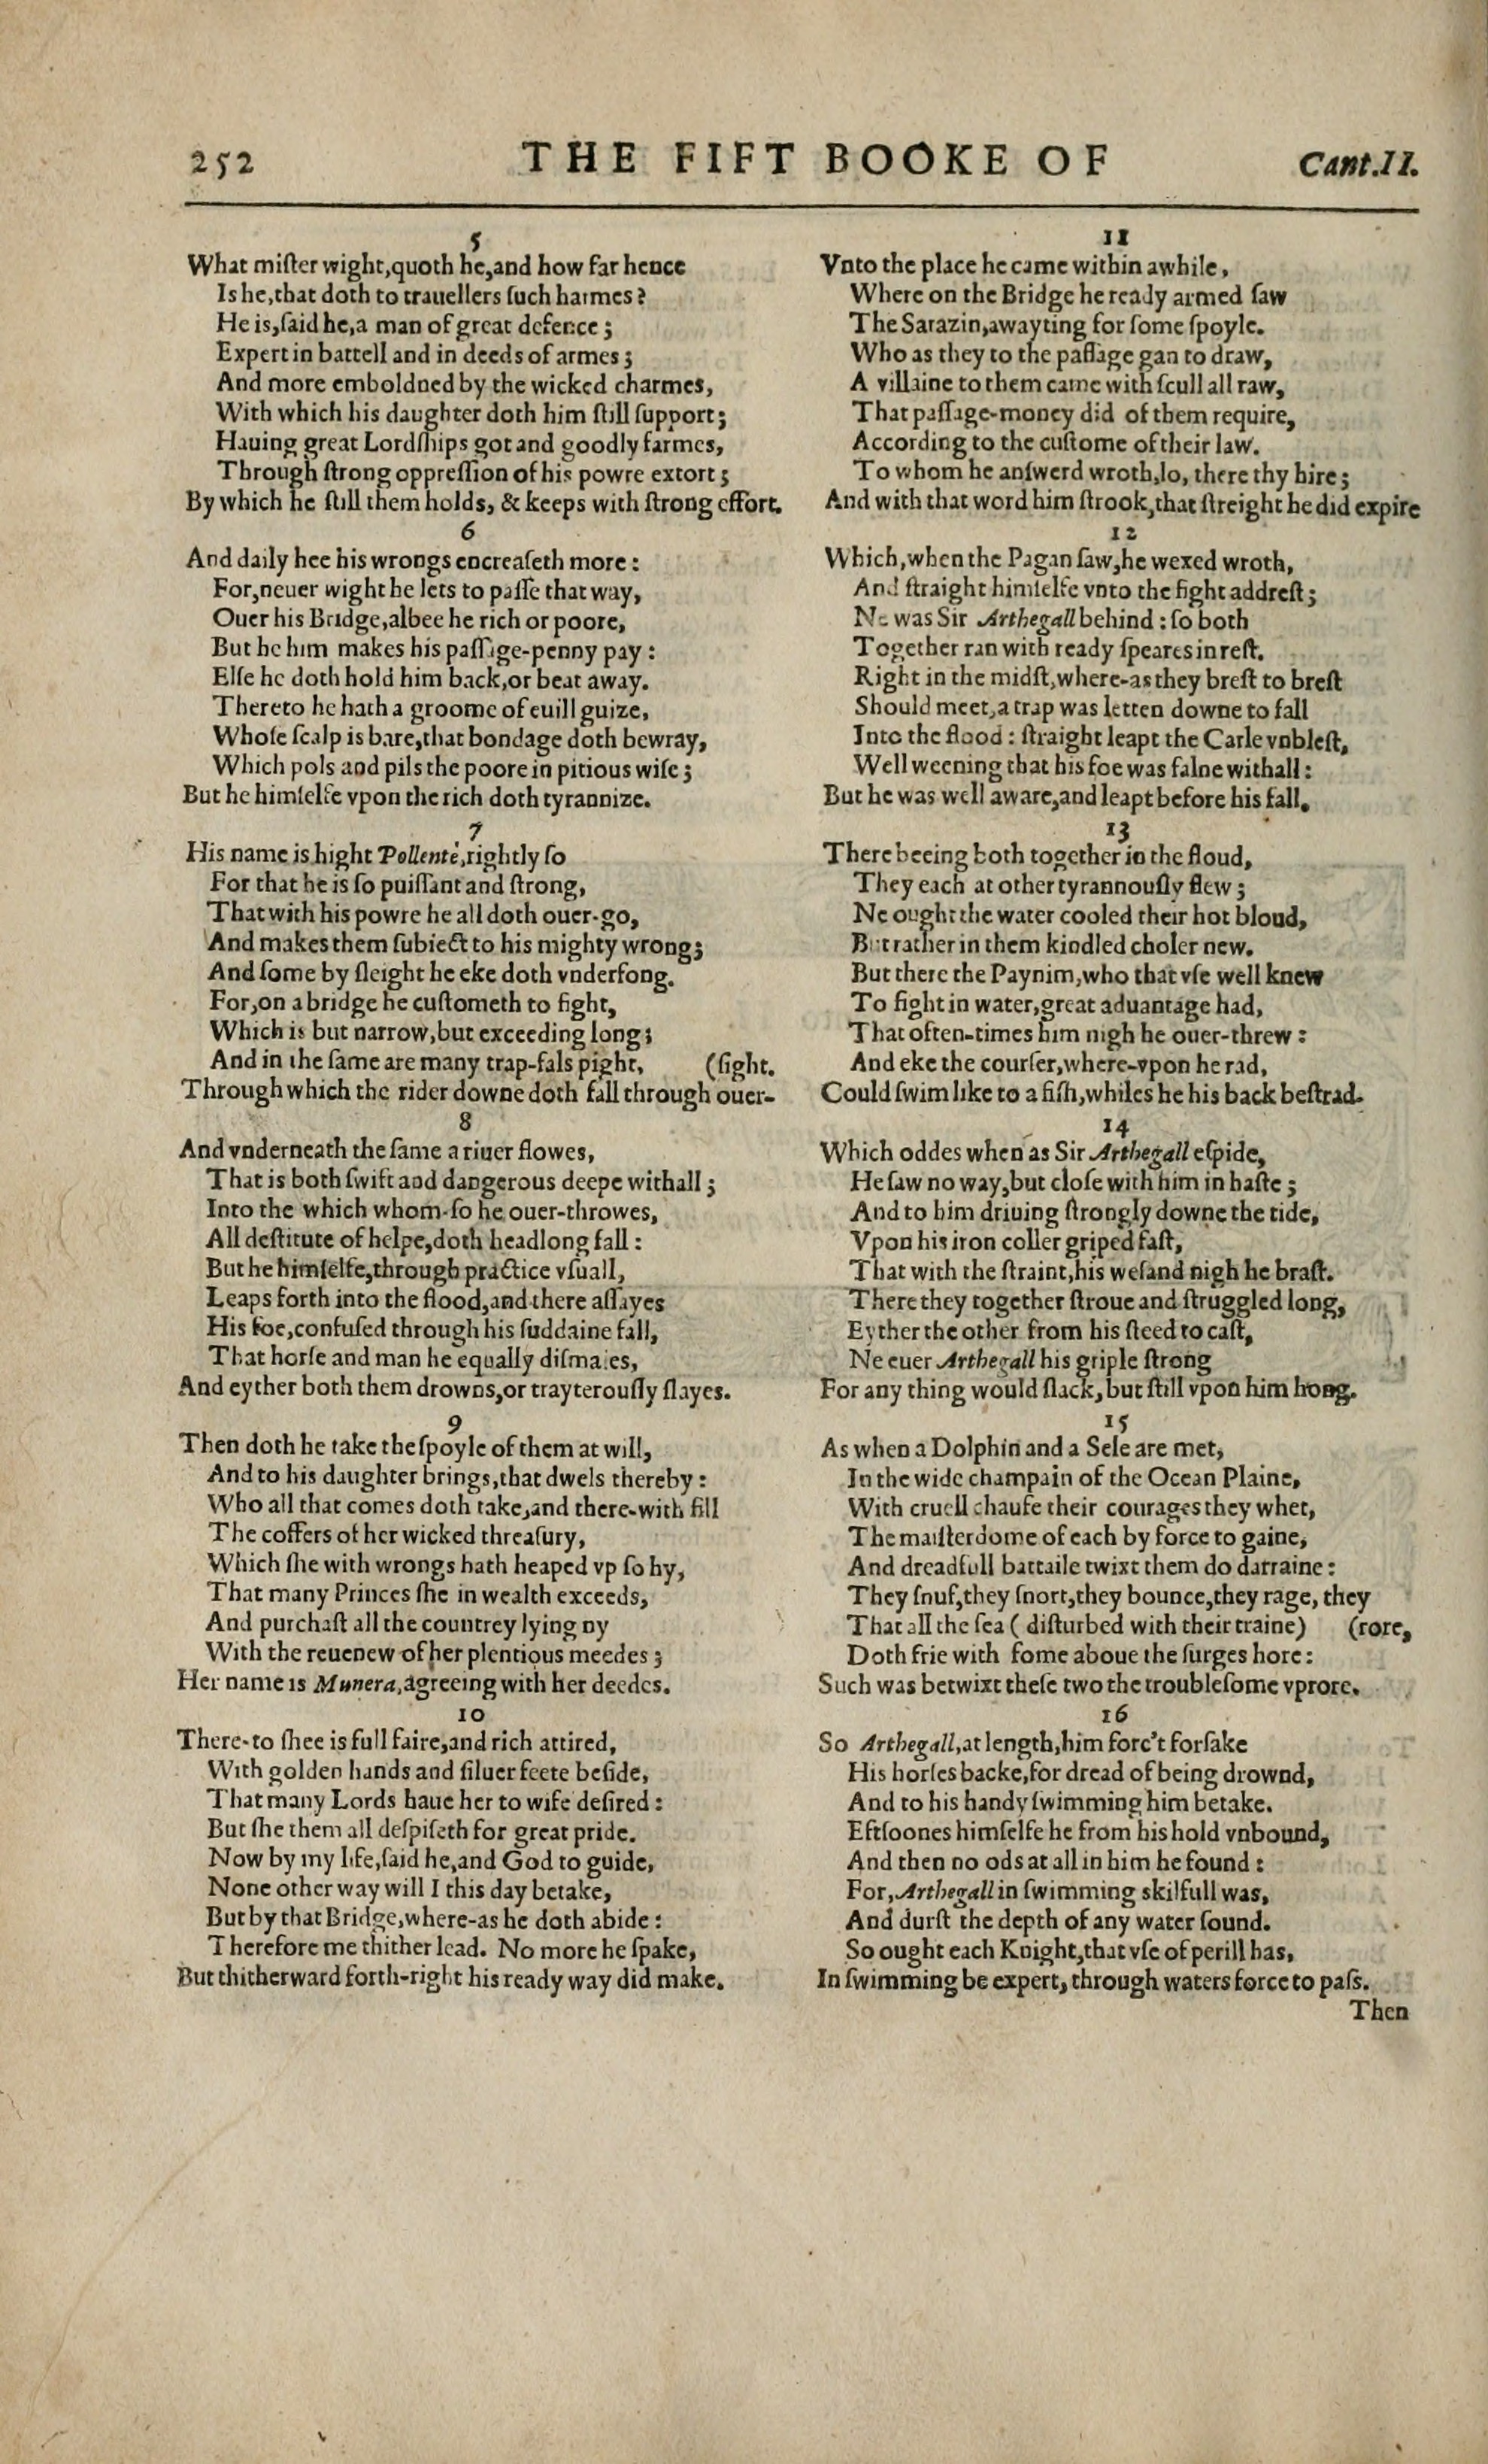 252 THE FIFT BOOKE OF Cant.II.
5
What miſter wight,quoth he,and how far hence
Is he,that doth to trauellers ſuch harmes?
He is,ſaid he,a man of great defence;
Expert in battell and in deeds of armes;
And more emboldned by the wicked charmes,
With which his daughter doth him ſtill ſupport;
Hauing great Lordſhips got and goodly farmes,
Through ſtrong oppreſſion of his powre extort;
By which he ſtill them holds, & keeps with ſtrong effort.
6
And daily hee his wrongs encreaſeth more:
For,neuer wight he lets to paſſe that way,
Ouer his Bridge,albee he rich or poore,
But he him makes his paſſage-penny pay:
Elſe he doth hold him back,or beat away.
Thereto he hath a groome of euill guize,
Whoſe ſcalp is bare,that bondage doth bewray,
Which pols and pils the poore in pitious wiſe;
But he himſelfe vpon the rich doth tyrannize.
7
His name is hight Pollenté,rightly ſo
For that he is ſo puiſſant and ſtrong,
That with his powre he all doth ouer-go,
And makes them ſubiect to his mighty wrong;
And ſome by ſleight he eke doth vnderfong.
For,on a bridge he cuſtometh to fight,
Which is but narrow,but exceeding long;
And in the ſame are many trap-fals pight, (ſight.
Through which the rider downe doth fall through ouer-
8
And vnderneath the ſame a riuer flowes,
That is both ſwift and dangerous deepe withall;
Into the which whom-ſo he ouer-throwes,
All deſtitute of helpe,doth headlong fall:
But he himſelfe,through practice vſuall,
Leaps forth into the flood,and there aſſayes
His foe,confuſed through his ſuddaine fall,
That horſe and man he equally diſmaies,
And eyther both them drowns,or trayterouſly ſlayes.
9
Then doth he take the ſpoyle of them at will,
And to his daughter brings,that dwels thereby:
Who all that comes doth take,and there-with fill
The coffers of her wicked threaſury,
Which ſhe with wrongs hath heaped vp ſo hy,
That many Princes ſhe in wealth exceeds,
And purchaſt all the countrey lying ny
With the reuenew of her plentious meedes;
Her name is Munera,agreeing with her deedes.
10
There-to ſhee is full faire,and rich attired,
With golden hands and ſiluer feete beſide,
That many Lords haue her to wife deſired:
But ſhe them all deſpiſeth for great pride.
Now by my life,ſaid he,and God to guide,
None other way will I this day betake,
But by that Bridge,where-as he doth abide:
Therefore me thither lead. No more he ſpake,
But thitherward forth-right his ready way did make.
11
Vnto the place he came within awhile,
Where on the Bridge he ready armed ſaw
The Sarazin,awayting for ſome ſpoyle.
Who as they to the paſſage gan to draw,
A villaine to them came with ſcull all raw,
That paſſage-money did of them require,
According to the cuſtome of their law.
To whom he anſwerd wroth,lo, there thy hire;
And with that word him ſtrook,that ſtreight he did expire
12
Which,when the Pagan ſaw,he wexed wroth,
And ſtraight himſelfe vnto the fight addreſt;
Ne was Sir Arthegall behind: ſo both
Together ran with ready ſpeares in reſt.
Right in the midſt,where-as they breſt to breſt
Should meet,a trap was letten downe to fall
Into the flood: ſtraight leapt the Carle vnbleſt,
Well weening that his foe was falne withall:
But he was well aware,and leapt before his fall.
13
There beeing both together in the floud,
They each at other tyrannouſly flew;
Ne ought the water cooled their hot bloud,
But rather in them kindled choler new.
But there the Paynim,who that vſe well knew
To fight in water,great aduantage had,
That often-times him nigh he ouer-threw:
And eke the courſer,where-vpon he rad,
Could ſwim like to a fiſh,whiles he his back beſtrad.
14
Which oddes when as Sir Arthegall eſpide,
He ſaw no way,but cloſe with him in haſte;
And to him driuing ſtrongly downe the tide,
Vpon his iron coller griped faſt,
That with the ſtraint,his weſand nigh he braſt.
There they together ſtroue and ſtruggled long,
Eyther the other from his ſteed to caſt,
Ne euer Arthegall his griple ſtrong
For any thing would ſlack,but ſtill vpon him hong.
15
As when a Dolphin and a Sele are met,
In the wide champain of the Ocean Plaine,
With cruell chaufe their courages they whet,
The maiſterdome of each by force to gaine,
And dreadfull battaile twixt them do darraine:
They ſnuf,they ſnort,they bounce,they rage, they
That all the ſea (diſturbed with their traine) (rore,
Doth frie with fome aboue the ſurges hore:
Such was betwixt theſe two the troubleſome vprore.
16
So Arthegall,at length,him forc't forſake
His horſes backe,for dread of being drownd,
And to his handy ſwimming him betake.
Eftſoones himſelfe he from his hold vnbound,
And then no ods at all in him he found:
For,Arthegall in ſwimming skilfull was,
And durſt the depth of any water ſound.
So ought each Knight,that vſe of perill has,
In ſwimming be expert, through waters force to paſs.
Then